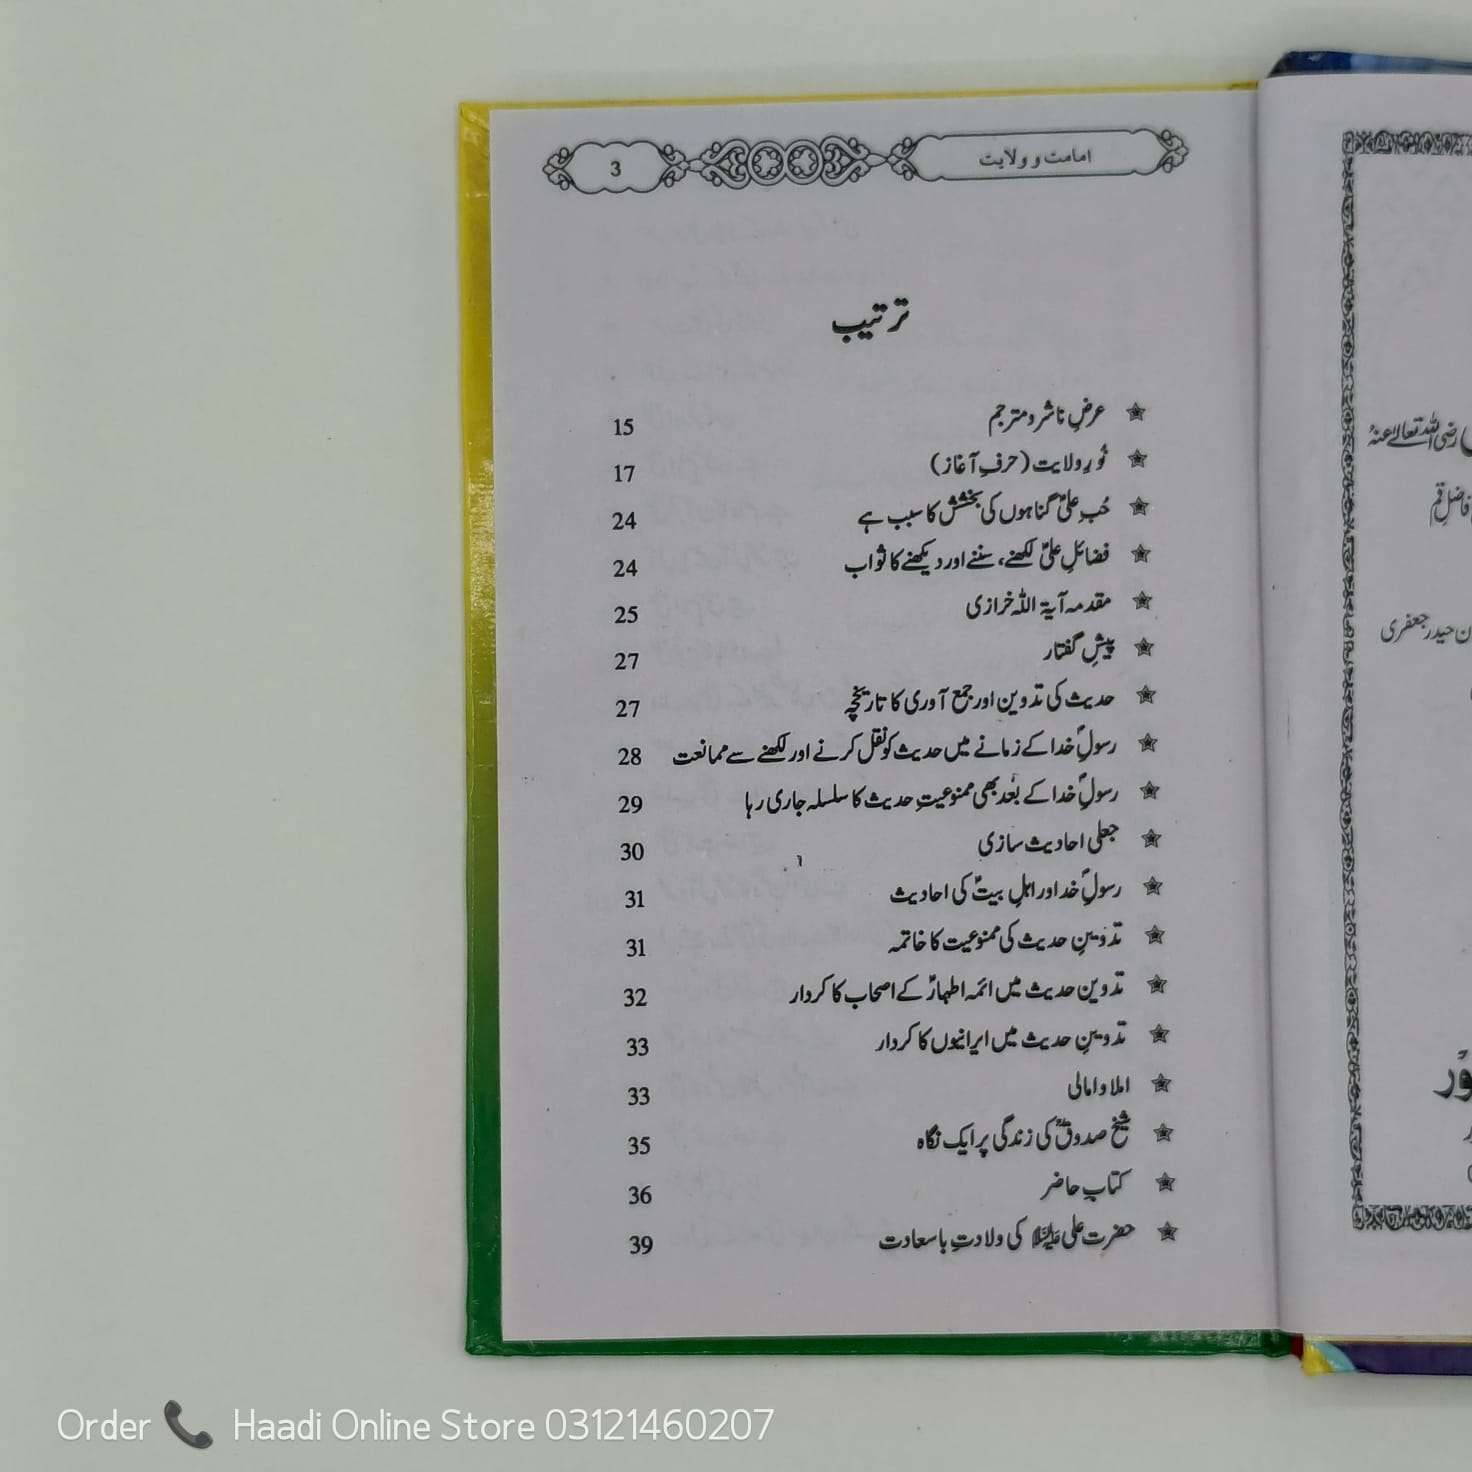 امامت و ولایت 3
ترتیب
عرضِ ناشر و مترجم 15
نُورِ ولایت (حرفِ آغاز) 17
حُبِ علیؑ گناہوں کی بخشش کا سبب ہے 24
فضائلِ علیؑ لکھنے، سننے اور دیکھنے کا ثواب 24
مقدمہ آیۃ اللہ خرازی 25
پیشِ گفتار 27
حدیث کی تدوین اور جمع آوری کا تاریخچہ 27
رسولِؐ خدا کے زمانے میں حدیث کو نقل کرنے اور لکھنے سے ممانعت 28
رسولِؐ خدا کے بعد بھی ممنوعیتِ حدیث کا سلسلہ جاری رہا 29
جعلی احادیث سازی 30
رسولِؐ خدا اور اہلِ بیتؑ کی احادیث 31
تدوینِ حدیث کی ممنوعیت کا خاتمہ 31
تدوین حدیث میں ائمہ اطہارؑ کے اصحاب کا کردار 32
تدوینِ حدیث میں ایرانیوں کا کردار 33
املا و امالی 33
شیخ صدوقؒ کی زندگی پر ایک نگاہ 35
کتابِ حاضر 36
حضرت علی علیہ السلام کی ولادتِ باسعادت 39
رضی اللہ تعالےٰ عنہٗ
فاضلِ قم
حیدر جعفری
Order Haadi Online Store 03121460207